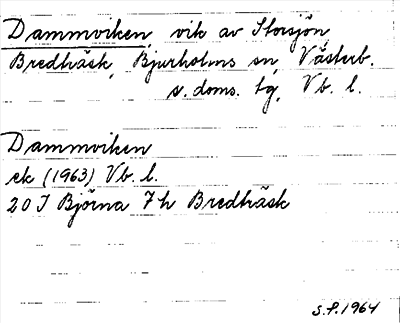 Dammviken, vik av Storsjön
Bredträsk, Bjurholms sn, Västerb.
s. doms. tg, Vb. l.
Dammviken
ek (1963) Vb. l.
20 I Björna 7h Bredträsk
S.P. 1964